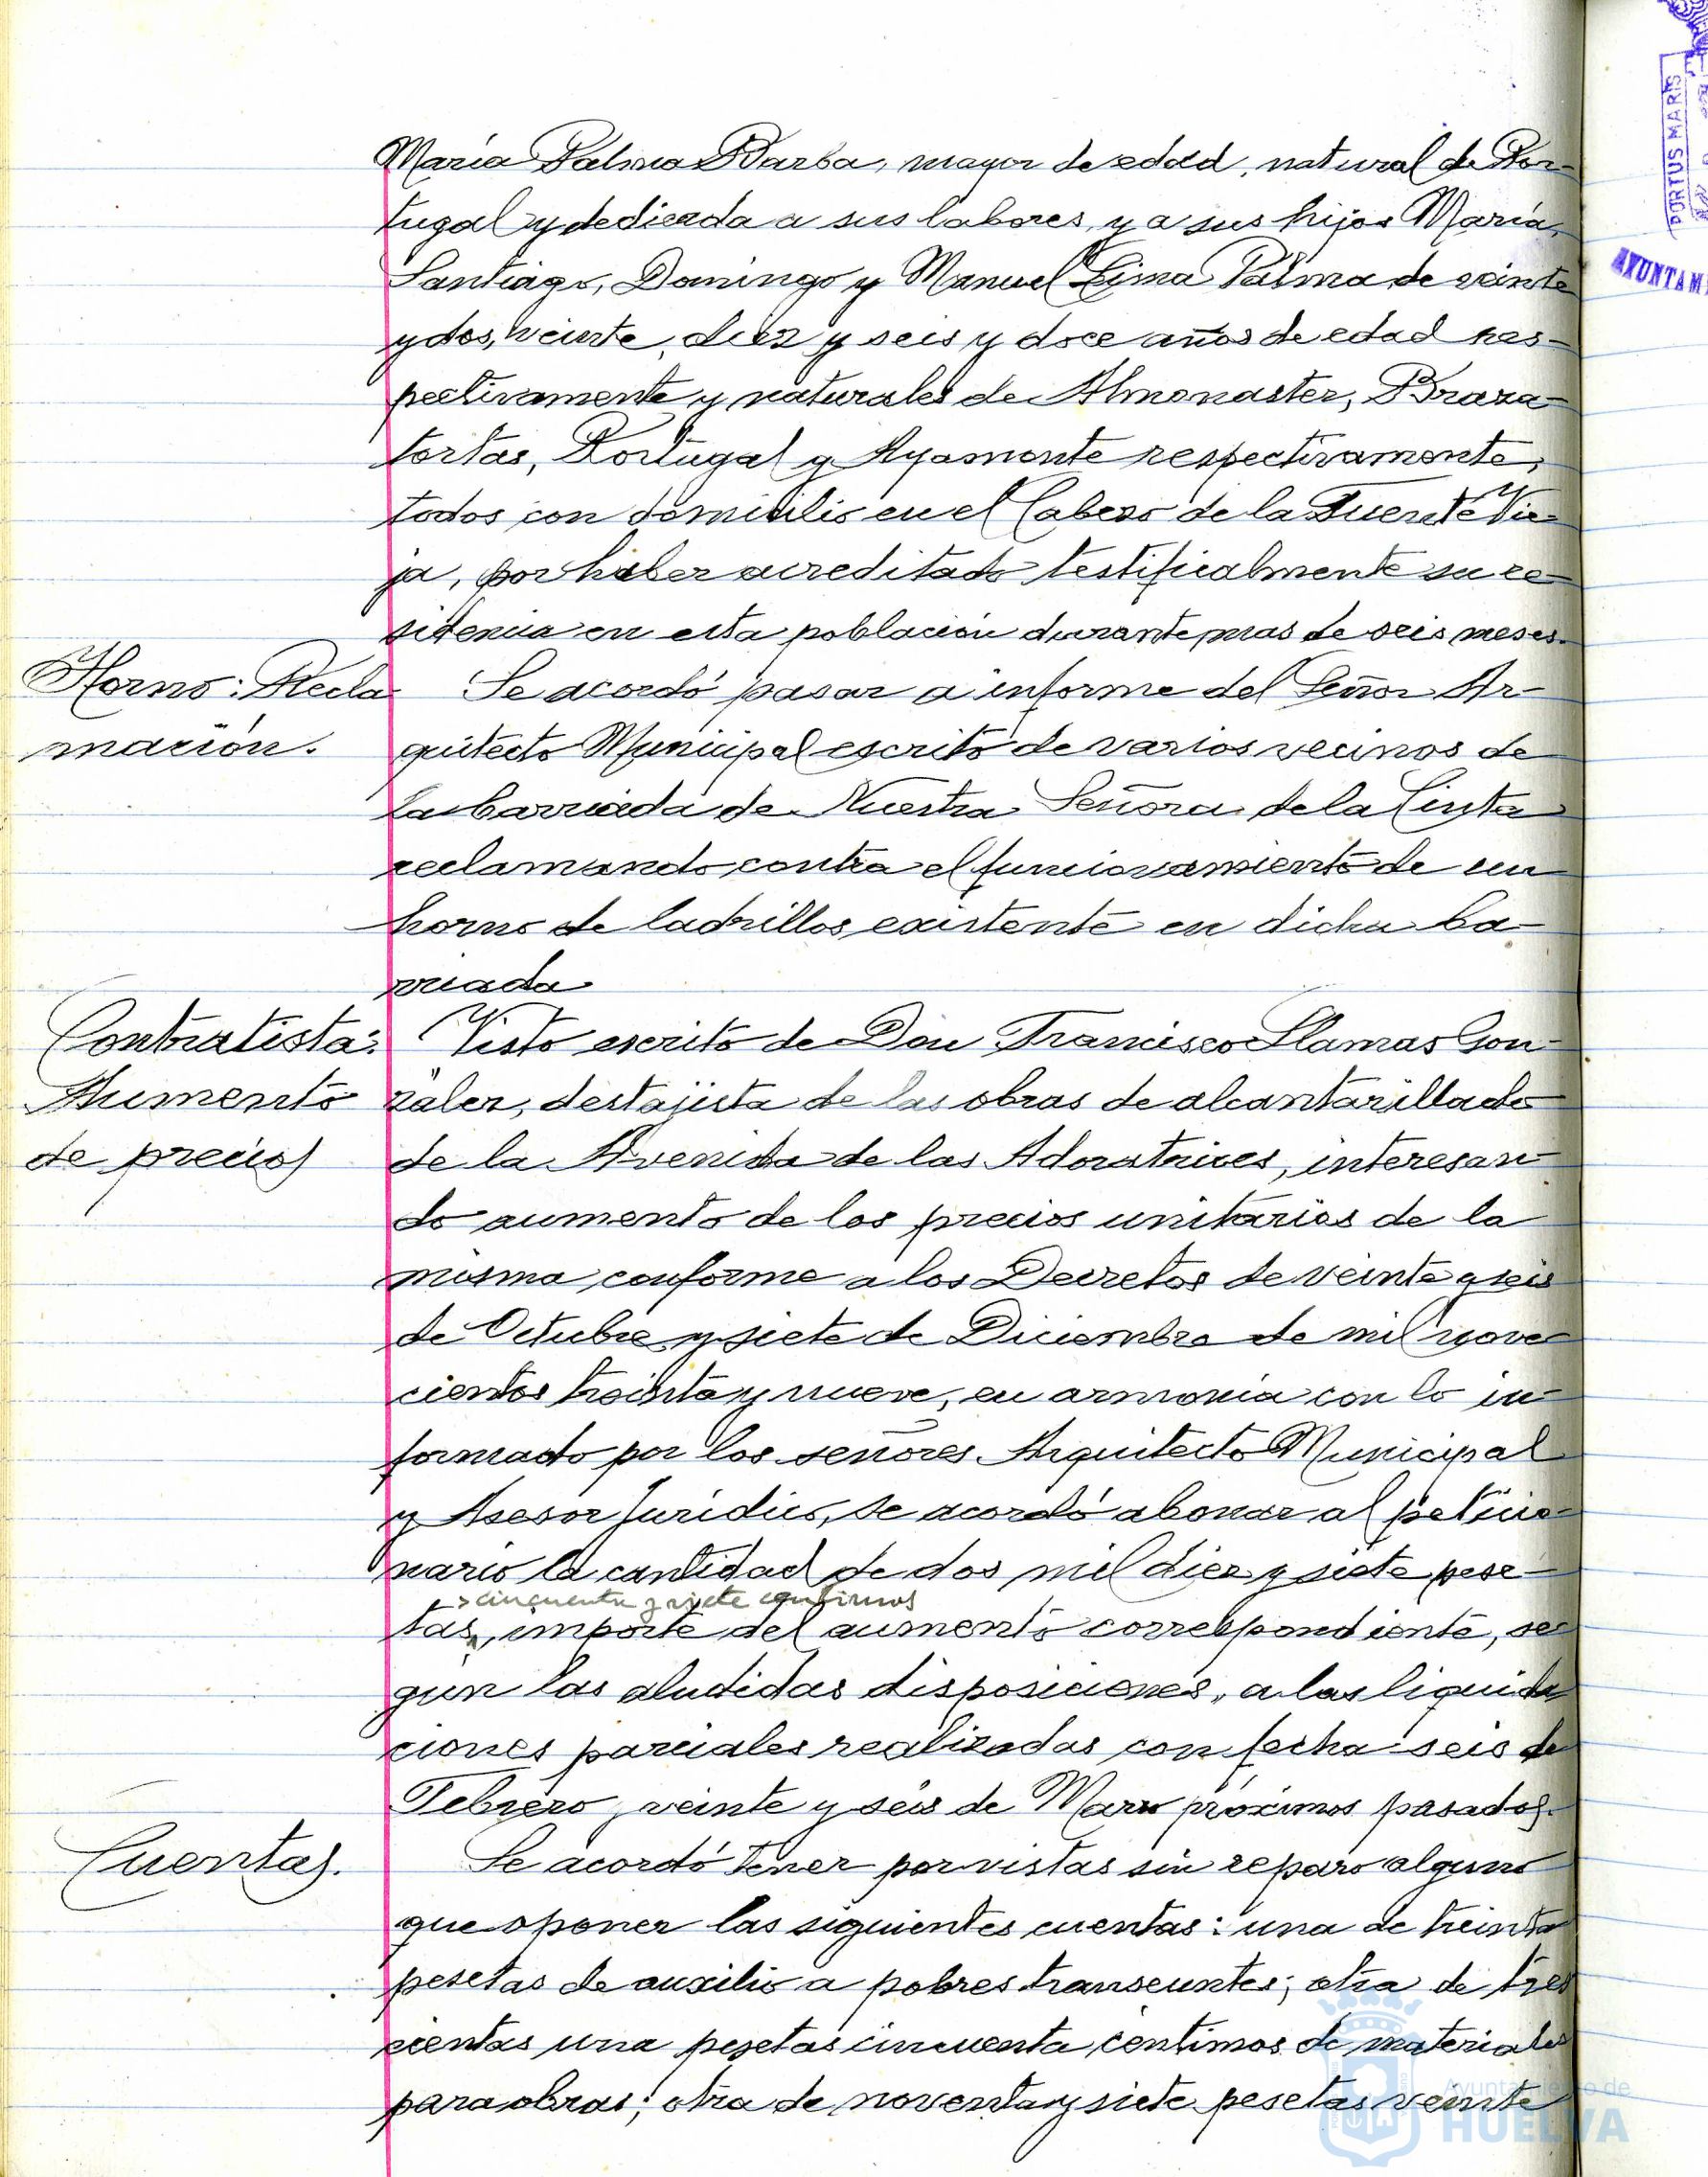 María Palma Barba, mayor de edad, natural de Por-
tugal y dedicada a sus labores, y a sus hijos María,
Santiago, Domingo y Manuel Lima Palma de veinte
y dos, veinte, diez y seis y doce años de edad res-
pectivamente y naturales de Almonaster, Braza-
tortas, Portugal y Ayamonte respectivamente,
todos con domicilio en el Cabezo de la Fuente Vie-
ja, por haber acreditado testificalmente su re-
sidencia en esta población durante mas de seis meses.
Horno: Recla-
mación.
Se acordó pasar a informe del Señor Ar-
quitecto Municipal escrito de varios vecinos de
la barriada de Nuestra Señora de la Cinta
reclamando contra el funcionamiento de un
horno de ladrillos existente en dicha ba-
rriada
Contratista:
Aumento
de precios
Visto escrito de Don Francisco Llamas Gon-
zalez, destajista de las obras de alcantarillado
de la Avenida de las Adoratrices, interesan-
do aumento de los precios unitarios de la
misma conforme a los Decretos de veinte y seis
de Octubre y siete de Diciembre de mil nove-
cientos treinta y nueve, en armonía con lo in-
formado por los señores Arquitecto Municipal
y Asesor Jurídico, se acordó abonar al peticio-
nario la cantidad de dos mil diez y siete pese-
cincuenta y siete centimos
tas, importe del aumento correspondiente, se-
gún las aludidas disposiciones, a las liquida-
ciones parciales realizadas con fecha seis de
Febrero, veinte y seis de Marzo próximos pasados.
Cuentas.
Se acordó tener por vistas sin reparo alguno
que oponer las siguientes cuentas: una de treinta
pesetas de auxilio a pobres transeuntes; otra de tres-
cientas una pesetas cincuenta centimos de materiales
para obras; otra de noventa y siete pesetas veinte
PORTUS MARIS
AYUNTAM
Ayuntamiento de
HUELVA